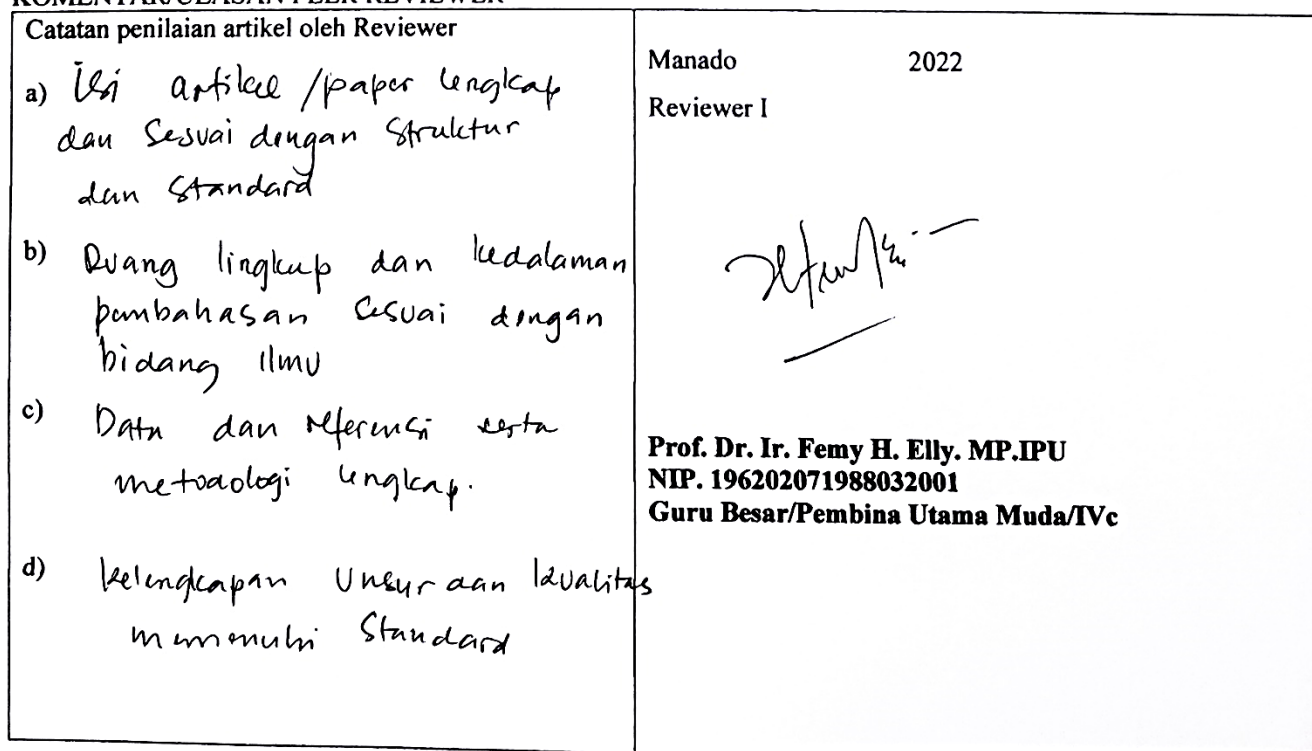 KOMENTAR/ULASAN PEER REVIEWER
Catatan penilaian artikel oleh Reviewer
a) Isi artikel /paper lengkap
dan Sesuai dengan Struktur
dan Standard
b) Ruang lingkup dan kedalaman
pembahasan sesuai dengan
bidang Ilmu
c) Data dan referensi serta
metodologi lengkap.
d) Kelengkapan Unsur dan kualitas
memenuhi Standard
Manado 2022
Reviewer I
Prof. Dr. Ir. Femy H. Elly. MP.IPU
NIP. 196202071988032001
Guru Besar/Pembina Utama Muda/IVc